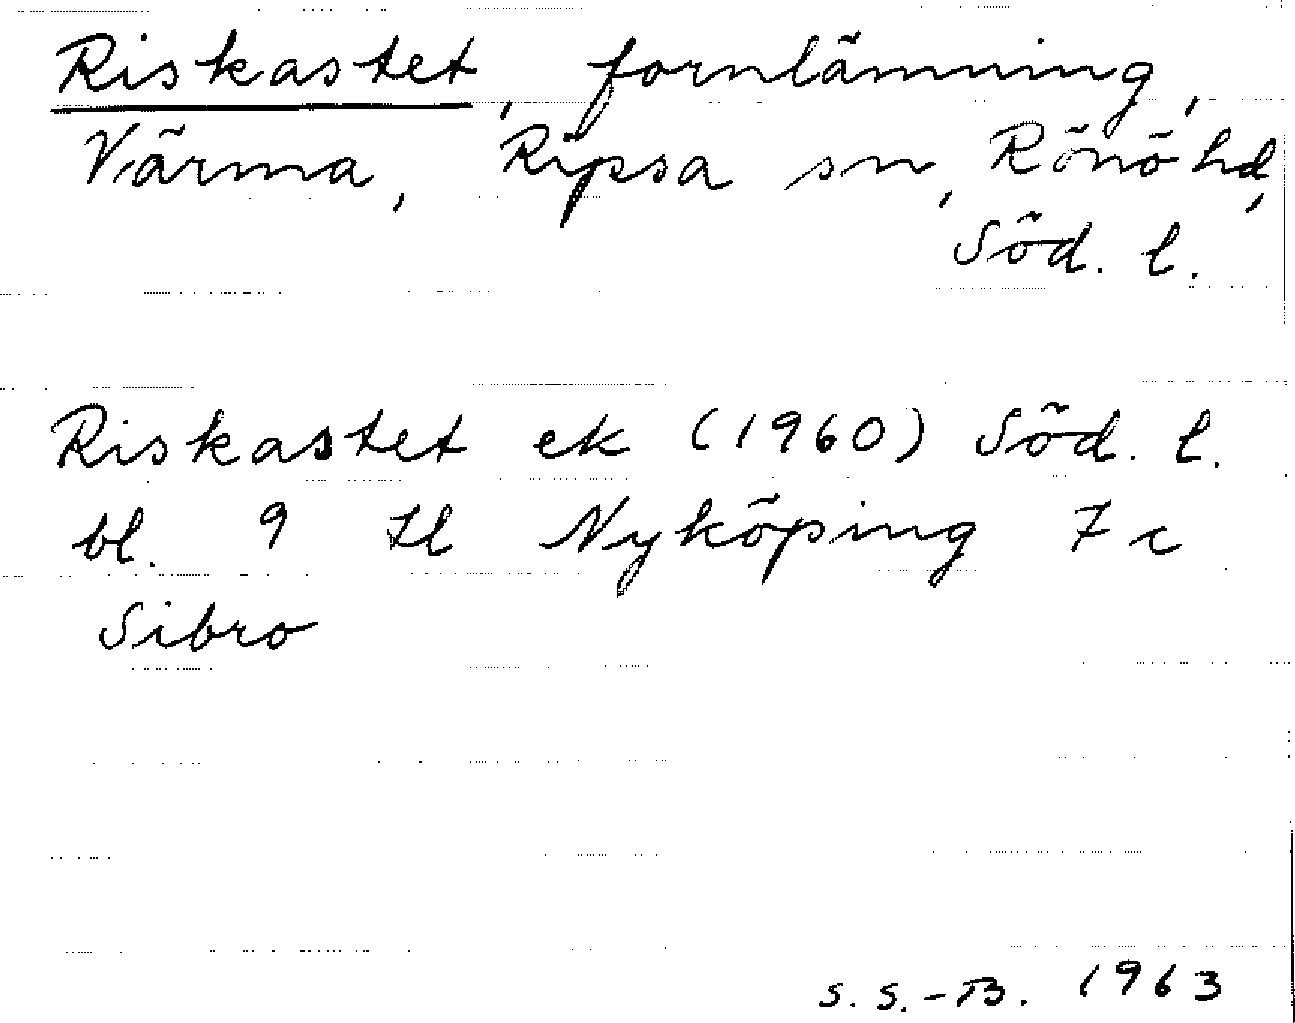 Riskastet, fornlämning,
Värma, Ripsa sn, Rönö hd,
Söd. l.
Riskastet ek (1960) Söd. l.
bl. 9 tl Nyköping 7 c
Sibro
S. S.-B. 1963